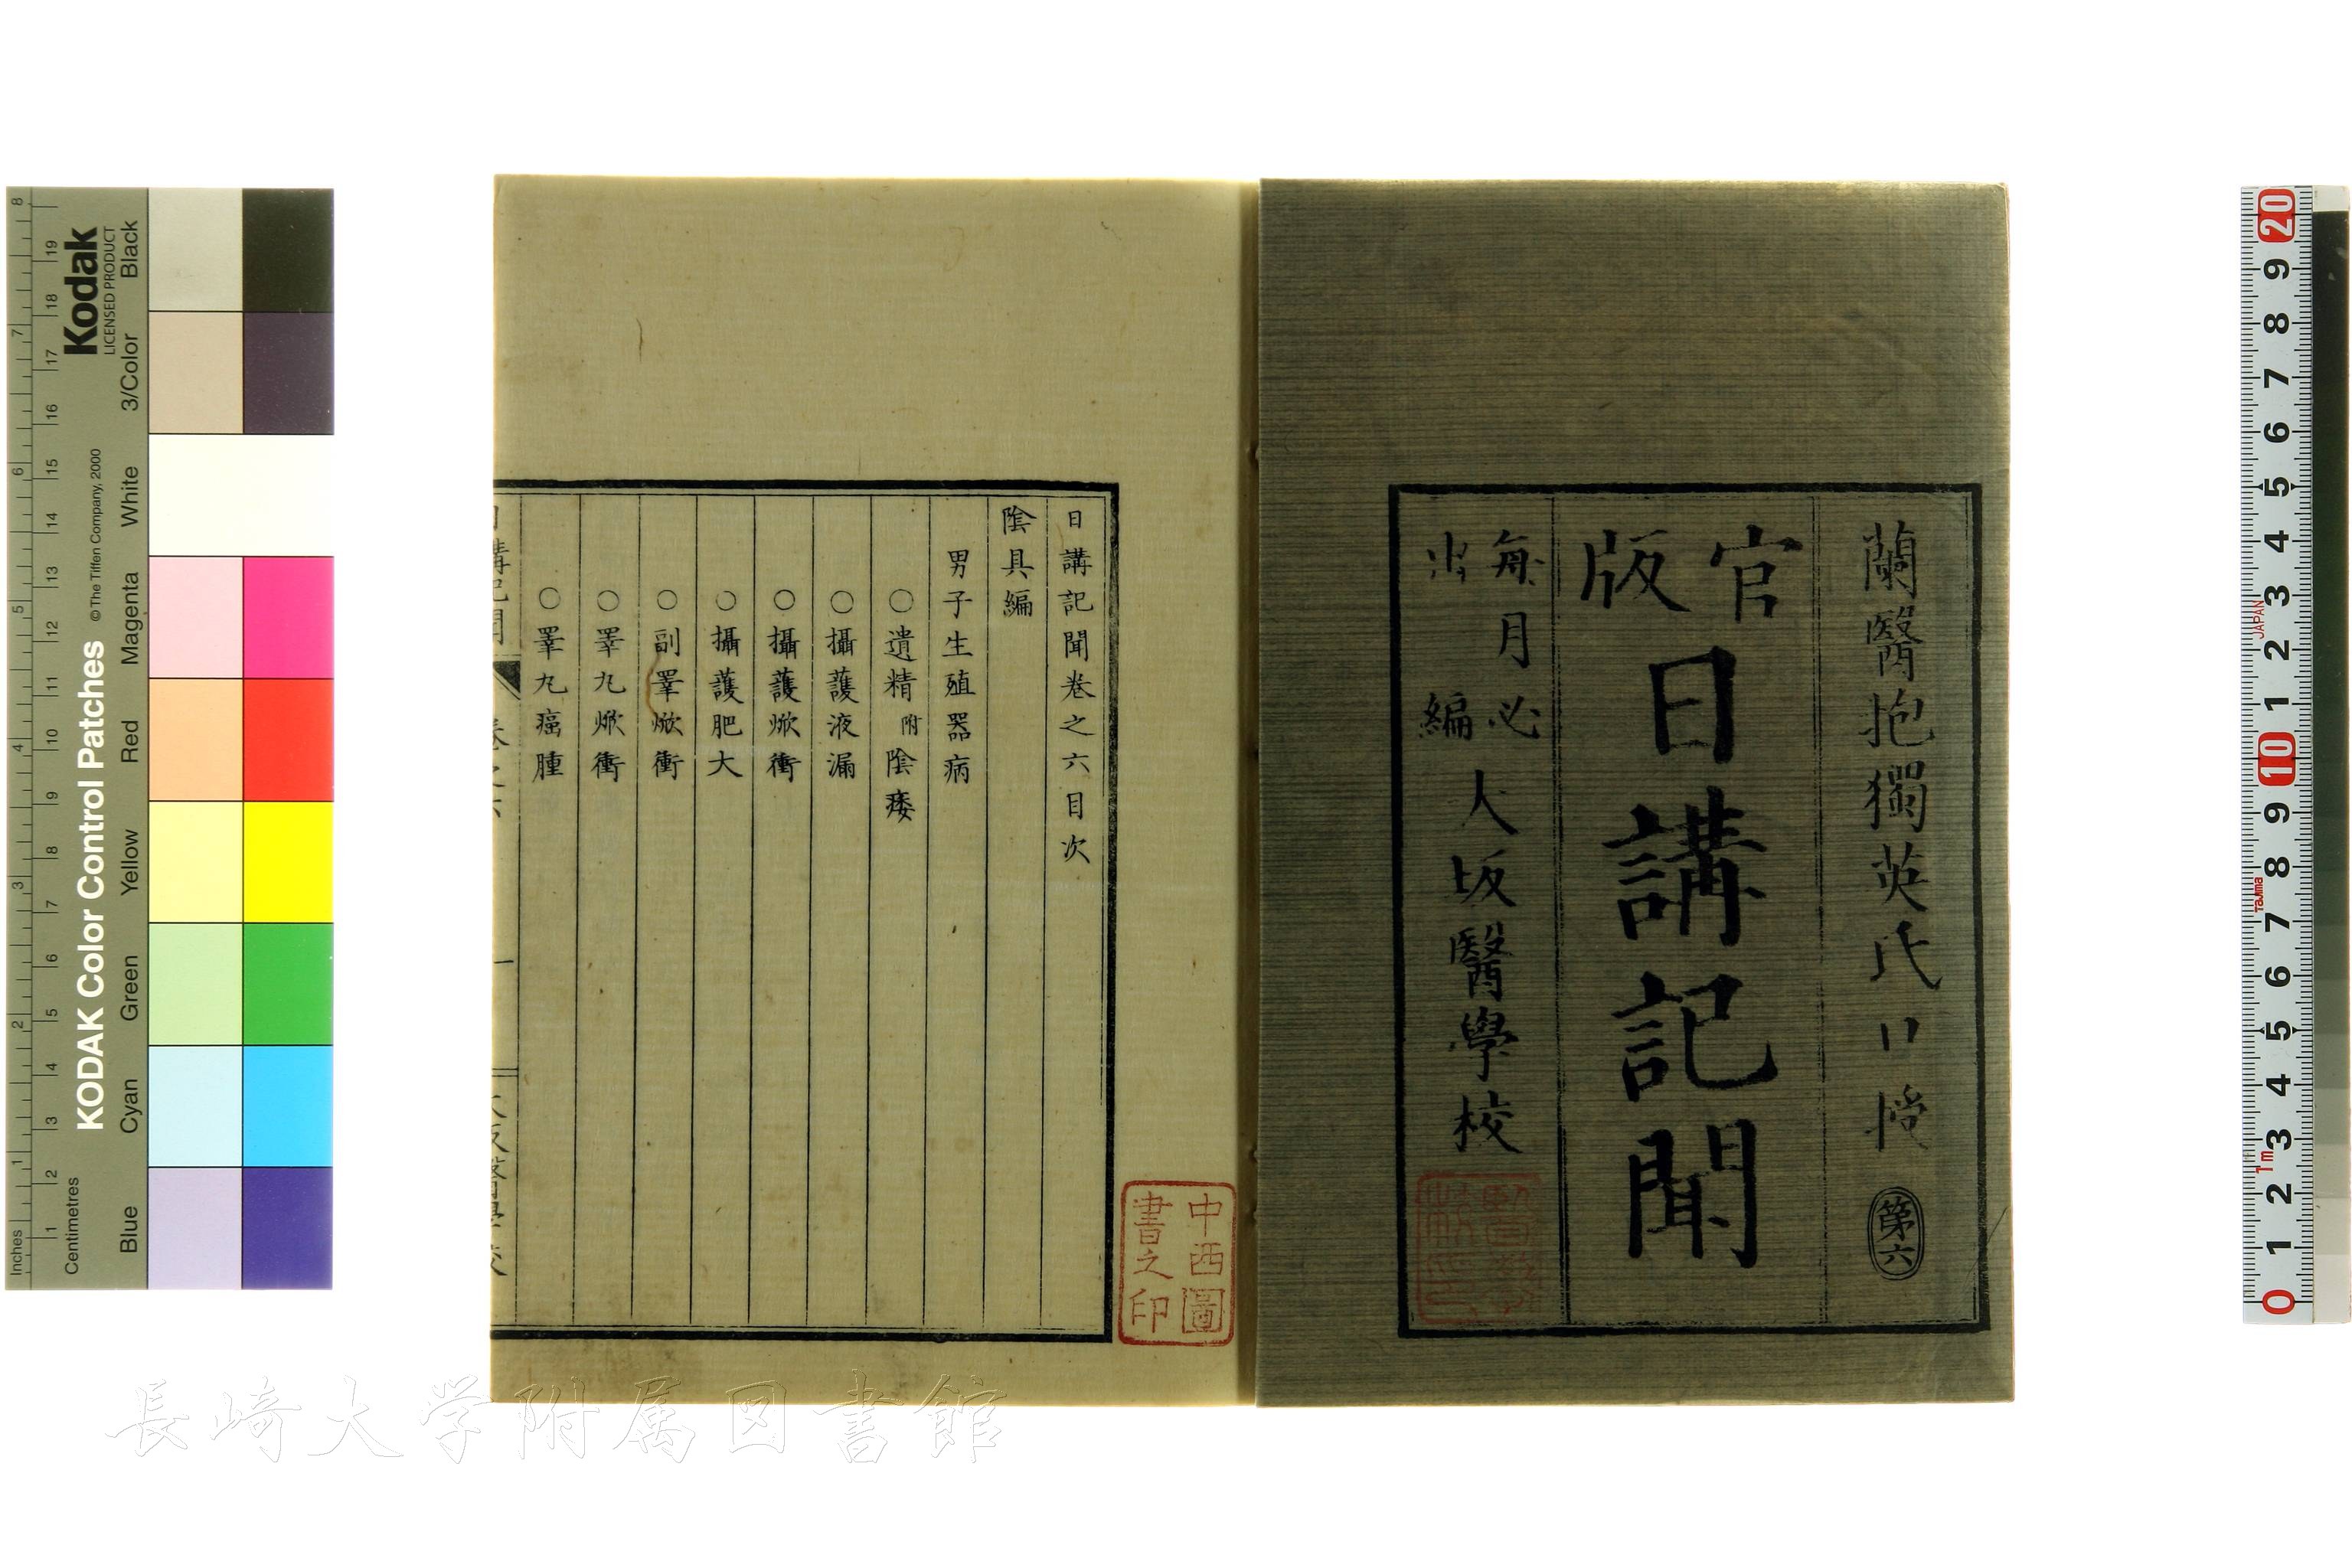 蘭醫抱獨英氏口授
第六
官版
日講記聞
每月必出編
大坂醫學校
日講記聞卷之六目次
陰具編
男子生殖器病
○遺精 附陰痿
○攝護液漏
○攝護焮衝
○攝護肥大
○副睪焮衝
○睪丸焮衝
○睪丸癌腫
中西圖書之印
長崎大学附属図書館
Kodak
LICENSED PRODUCT
KODAK Color Control Patches
© The Tiffen Company, 2000
Inches
1 2 3 4 5 6 7 8
Centimetres
1 2 3 4 5 6 7 8 9 10 11 12 13 14 15 16 17 18 19
Blue Cyan Green Yellow Red Magenta White 3/Color Black
0 1 2 3 4 5 6 7 8 9 10 1 2 3 4 5 6 7 8 9 20
1m
Tajima
JAPAN